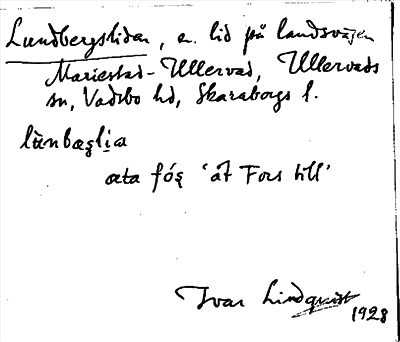 Lundbergsliden, en lid på landsvägen
Mariestad-Ullervad, Ullervads
sn, Vadsbo hd, Skaraborgs l.
lùnbæglia
æta fóş 'åt Fors till'
Ivar Lindquist
1928